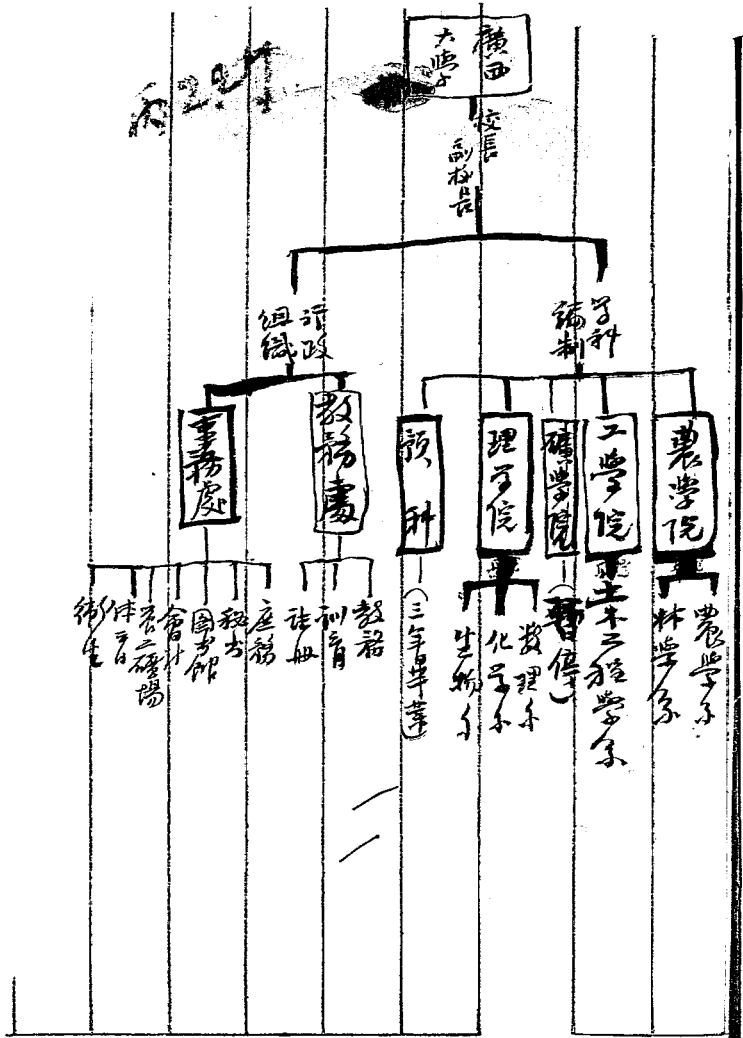 廣西
大學
校長
副校長
学科
編制
行政
組織
農学院
工學院
礦學院
理学院
預科
教務處
事務處
農學系
林學系
土木工程學系
(暫停)
数理系
化学系
生物系
(三年畢業)
教務
訓育
註冊
庶務
秘书
图书館
會計
农工礦場
体育
衛生